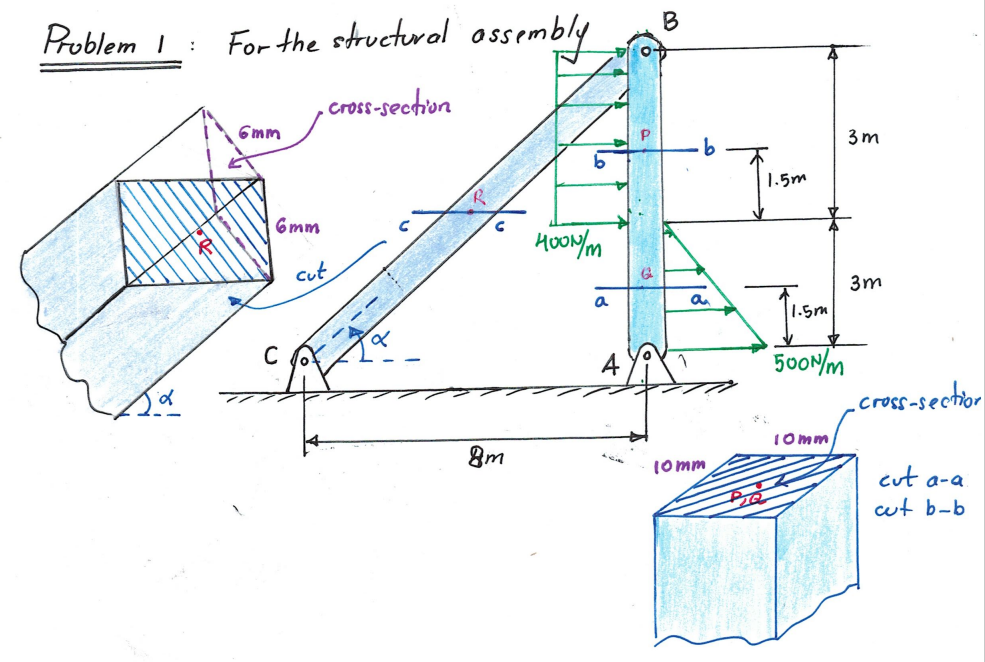 Problem 1 : For the structural assembly
B
cross-section
6mm
6mm
R
cut
α
C
α
R
c
c
400N/m
P
b
b
Q
a
a
A
3m
1.5m
3m
1.5m
500N/m
8m
cross-section
10mm
10mm
P,Q
cut a-a
cut b-b